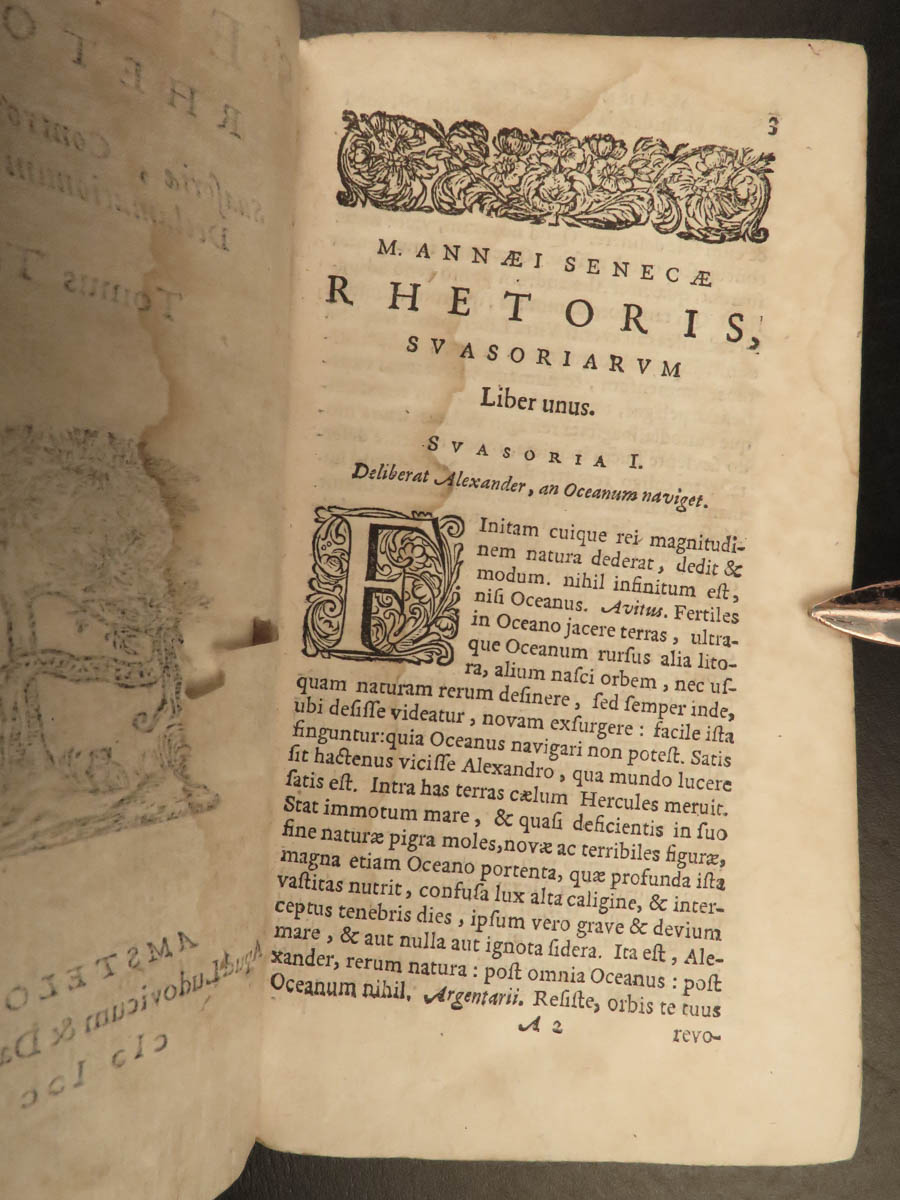 3
M. ANNÆI SENECÆ
RHETORIS,
SVASORIARVM
Liber unus.
SVASORIA I.
Deliberat Alexander, an Oceanum naviget.
FInitam cuique rei magnitudi-
nem natura dederat, dedit &
modum. nihil infinitum eſt,
niſi Oceanus. Avitus. Fertiles
in Oceano jacere terras, ultra-
que Oceanum rurſus alia lito-
ra, alium naſci orbem, nec uſ-
quam naturam rerum deſinere, ſed ſemper inde,
ubi deſiſſe videatur, novam exſurgere: facile iſta
finguntur: quia Oceanus navigari non poteſt. Satis
ſit hactenus viciſſe Alexandro, qua mundo lucere
ſatis eſt. Intra has terras cælum Hercules meruit.
Stat immotum mare, & quaſi deficientis in ſuo
fine naturæ pigra moles, novæ ac terribiles figuræ,
magna etiam Oceano portenta, quæ profunda iſta
vaſtitas nutrit, confuſa lux alta caligine, & inter-
ceptus tenebris dies, ipſum vero grave & devium
mare, & aut nulla aut ignota ſidera. Ita eſt, Ale-
xander, rerum natura: poſt omnia Oceanus: poſt
Oceanum nihil. Argentarii. Reſiſte, orbis te tuus
A 2
revo-
RHETO
Suaſoriæ, Contro
Declamationum
Tomus T
AMSTELO
Apud Ludovicum & Da
cIɔ Iɔc